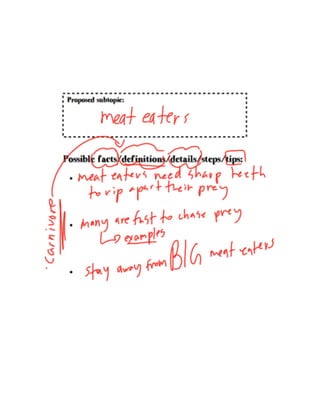 Proposed subtopic:
meat eaters
Possible facts/definitions/details/steps/tips:
• meat eaters need sharp teeth
to rip apart their prey
• many are fast to chase prey
examples
• stay away from BIG meat eaters
Carnivore